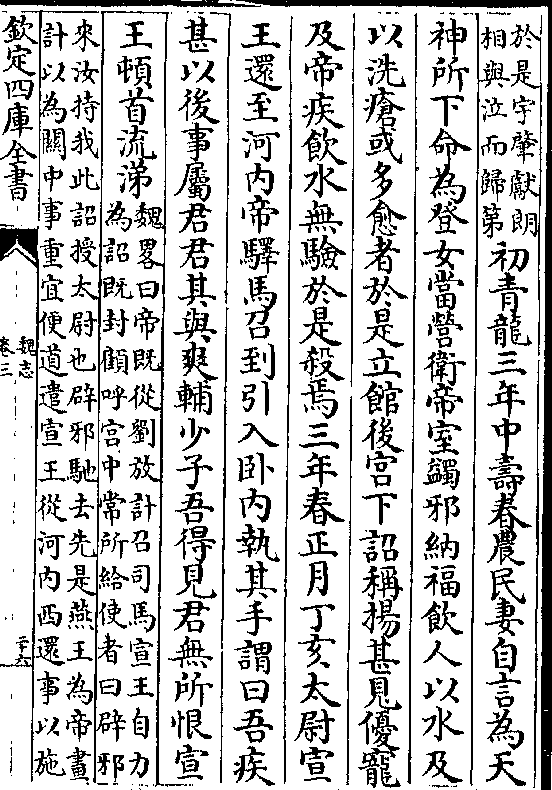 於是宇肇獻朗
相與泣而歸第
初青龍三年中壽春農民妻自言為天
神所下命為登女當營衛帝室蠲邪納福飲人以水及
以洗瘡或多愈者於是立館後宮下詔稱揚甚見優寵
及帝疾飲水無驗於是殺焉三年春正月丁亥太尉宣
王還至河内帝驛馬召到引入卧内執其手謂曰吾疾
甚以後事屬君君其與爽輔少子吾得見君無所恨宣
王頓首流涕
魏畧曰帝既從劉放計召司馬宣王自力
為詔既封顧呼宫中常所給使者曰辟邪
來汝持我此詔授太尉也辟邪馳去先是燕王為帝畫
計以為關中事重宜便道遣宣王從河内西還事以施
欽定四庫全書
魏志
卷三
二十六